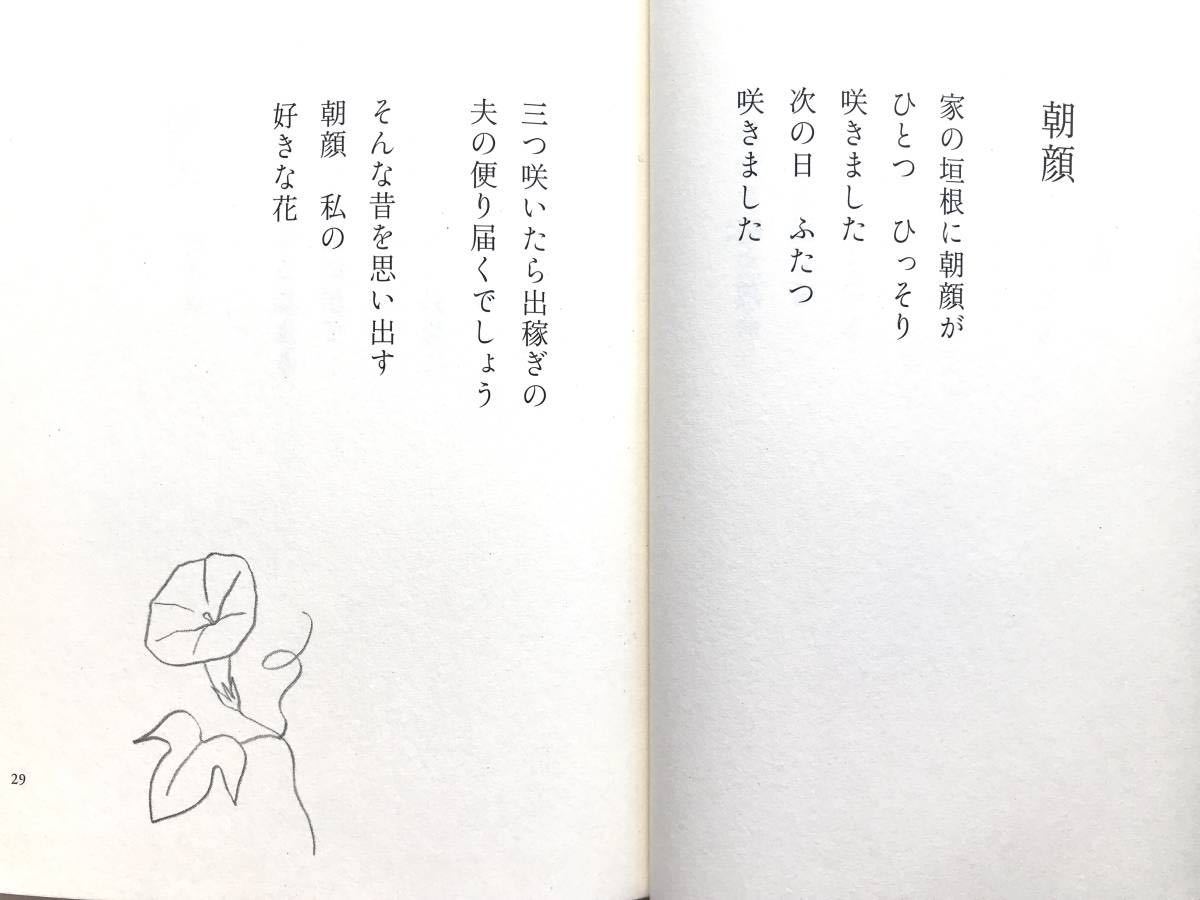 朝顔
家の垣根に朝顔が
ひとつ　ひっそり
咲きました
次の日　ふたつ
咲きました
三つ咲いたら出稼ぎの
夫の便り届くでしょう
そんな昔を思い出す
朝顔　私の
好きな花
29